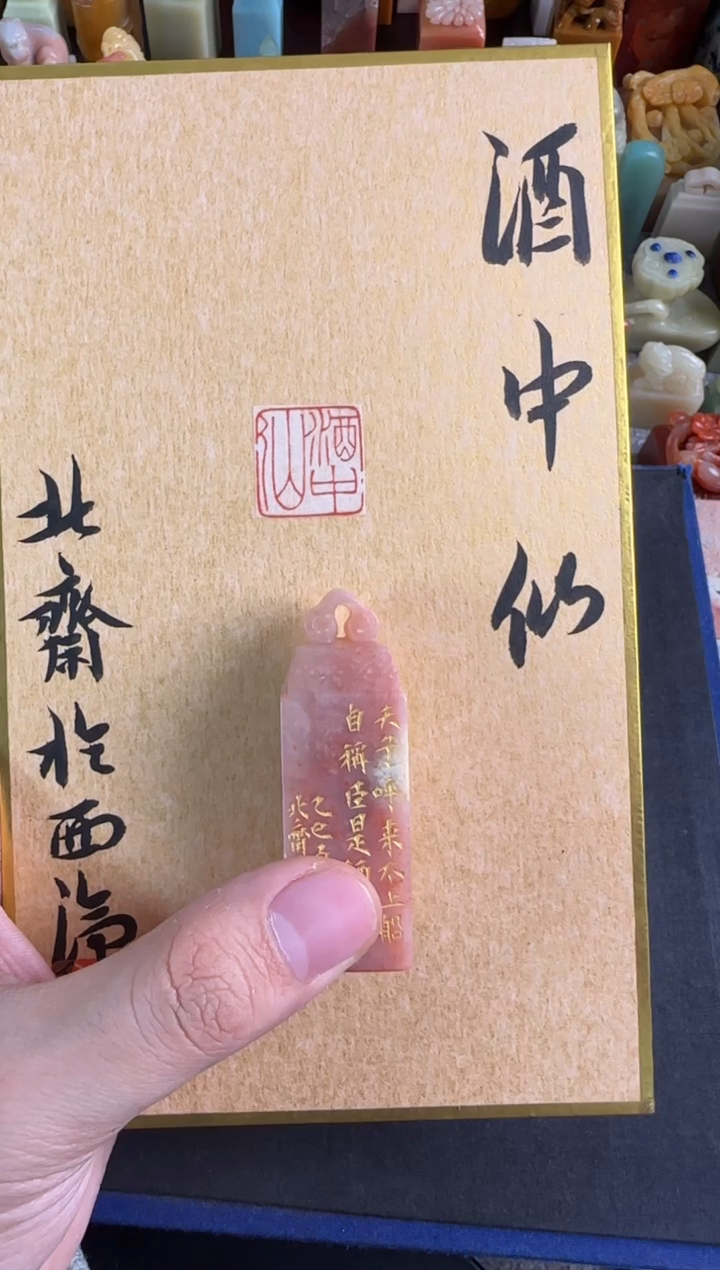 酒中仙
酒中仙
天子呼来不上船
自稱臣是
乙巳
北齋
北齋於西泠